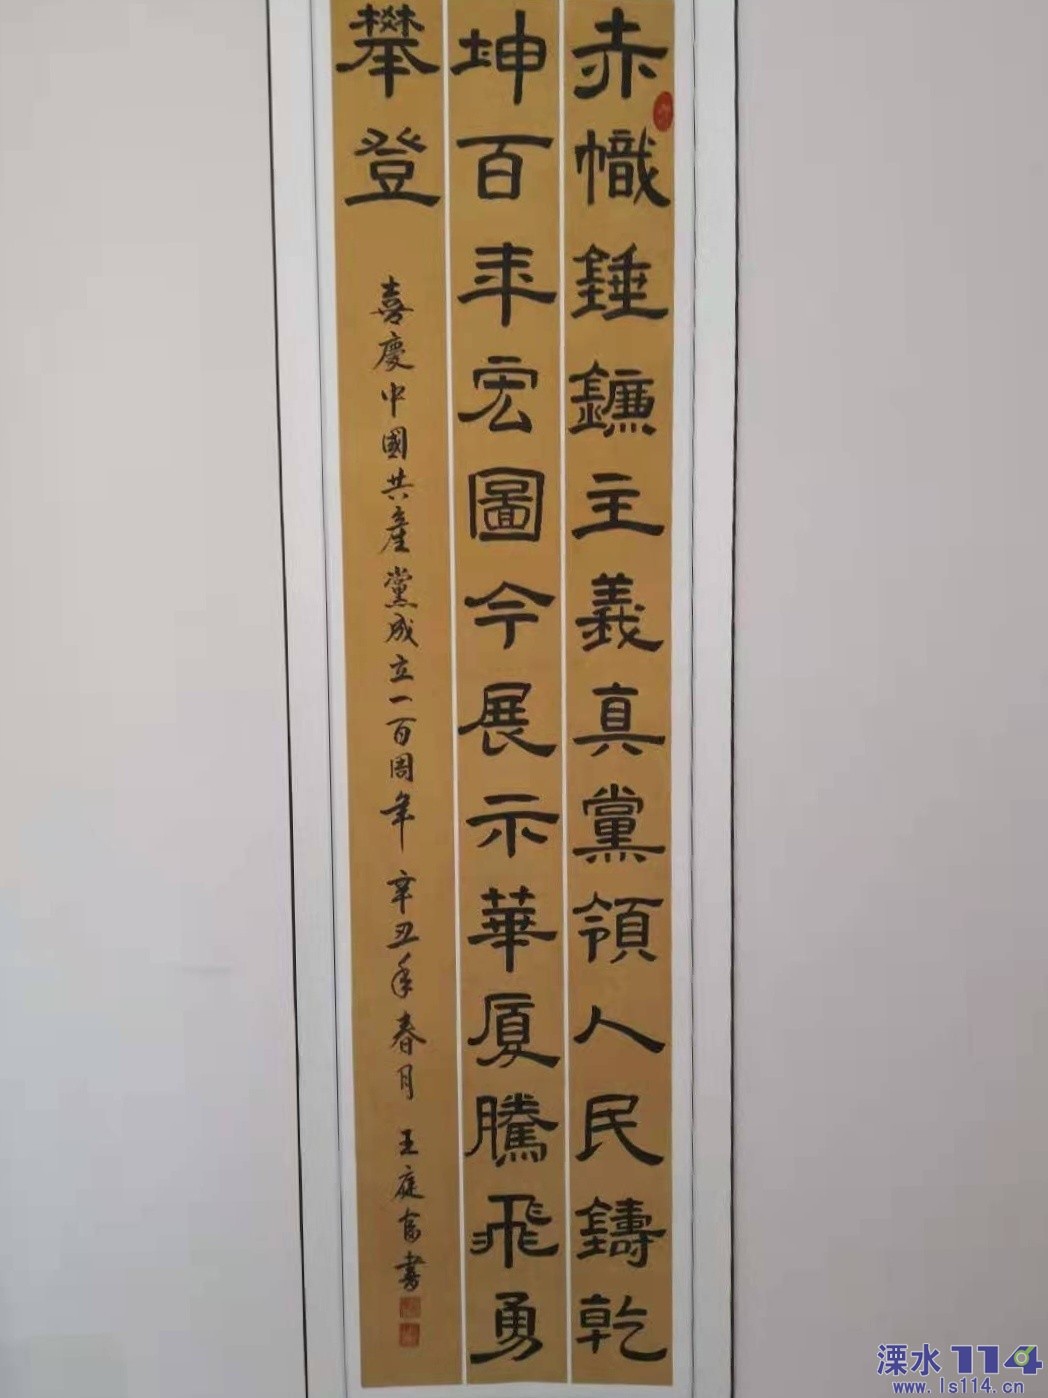 赤幟錘鐮主義真黨領人民鑄乾
坤百年宏圖今展示華厦騰飛勇
攀登
喜慶中國共產黨成立一百周年 辛丑年春月 王庭富書
溧水114
www.ls114.cn